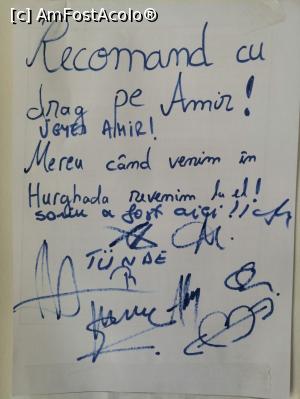 [c] AmFostAcolo®
Recomand cu
drag pe Amir!
AMIR!
Mereu când venim în
Hurghada revenim la el!
a fost aici!!
TÜNDE